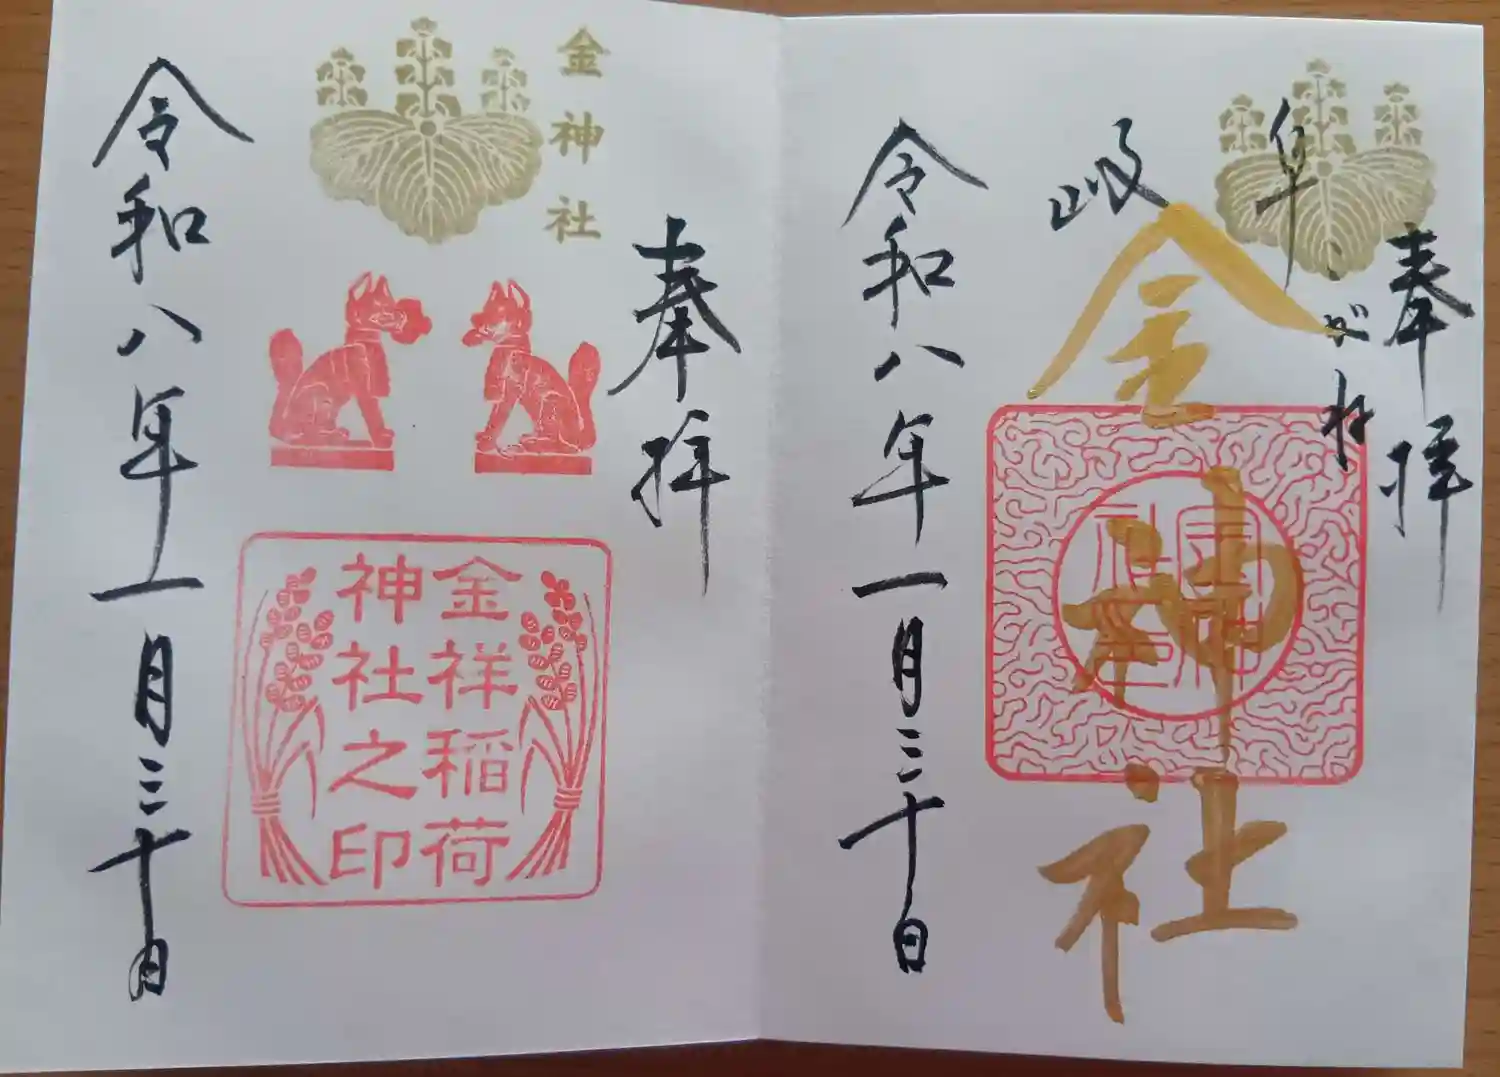 奉拝
岐阜
こがね
金神社
令和八年一月三十日
奉拝
金神社
金祥稲荷
神社之印
令和八年一月三十日